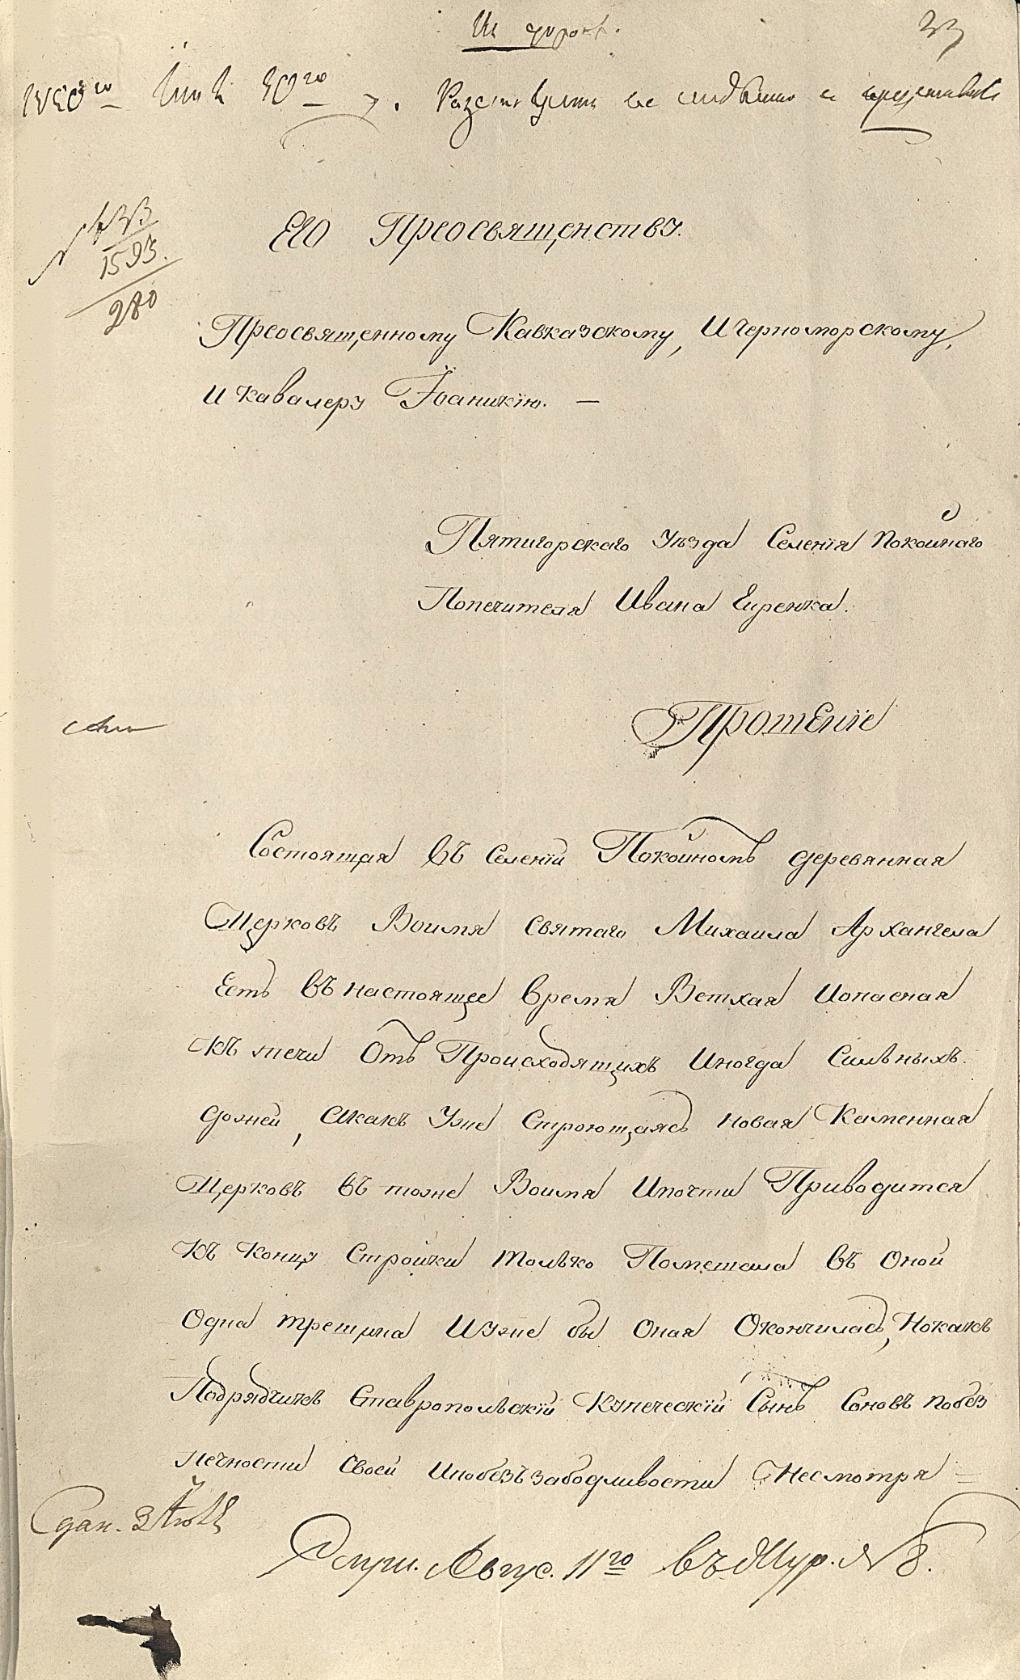 33
1850го Іюля 30го
№ 433
1593.
280
Его Преосвященству.
Преосвященному Кавказскому, И Черноморскому,
и кавалеру Іоаникію. —
Пятигорскаго Уѣзда Селенія Покойнаго
Попечителя Ивана
Прошеніе
Состоящая въ Селеніи Покойномъ деревянная
Церковъ Воимя Святаго Михаила Архангела
Есть въ настоящее время Ветхая Иопасная
Къ течи Отъ Происходящихъ Иногда Сильныхъ
дожей, Икакъ Уже Строющаясь новая Каменная
Церковъ въ тоже Воимя Ипочти Приводится
Къ Концу Стройки только Помешала въ Оной
Одна трещина Иуже бы Оная Окончилась, Нокакъ
Подрядчикъ Ставропольскій Купеческій Сынъ Соновъ побез
печности Своей Ипобезъзаботливости Несмотря —
Сдан. 3 Авг
Слуш. Авгус. 11го въ Жур. № 8.